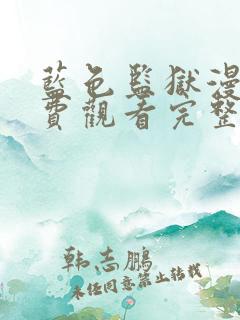 藍色監獄漫
費觀看完整
韩志鹏
未经同意禁止转载